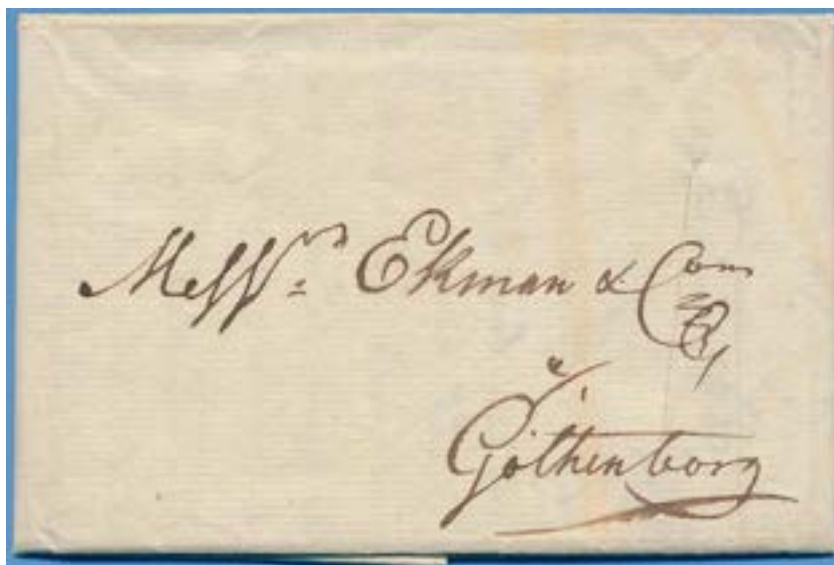 Messrs Ekman & Com
Göthenborg